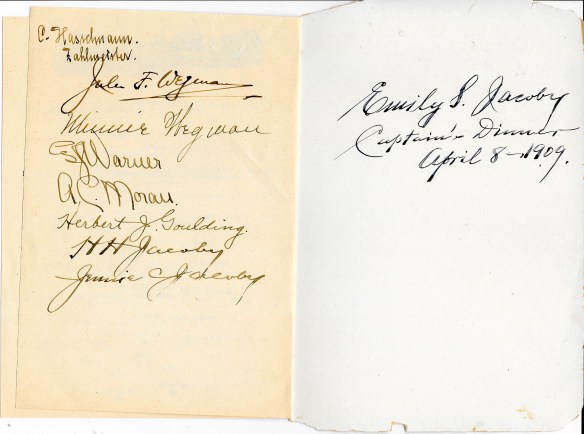 C. Hasselmann.
Zahlmeister.
Jules F. Wegman
Minnie Wegman
E J Warner
A. C. Moran.
Herbert J. Goulding.
H H Jacoby
Jennie C Jacoby
Emily S. Jacoby
Captain's Dinner
April 8–1909.